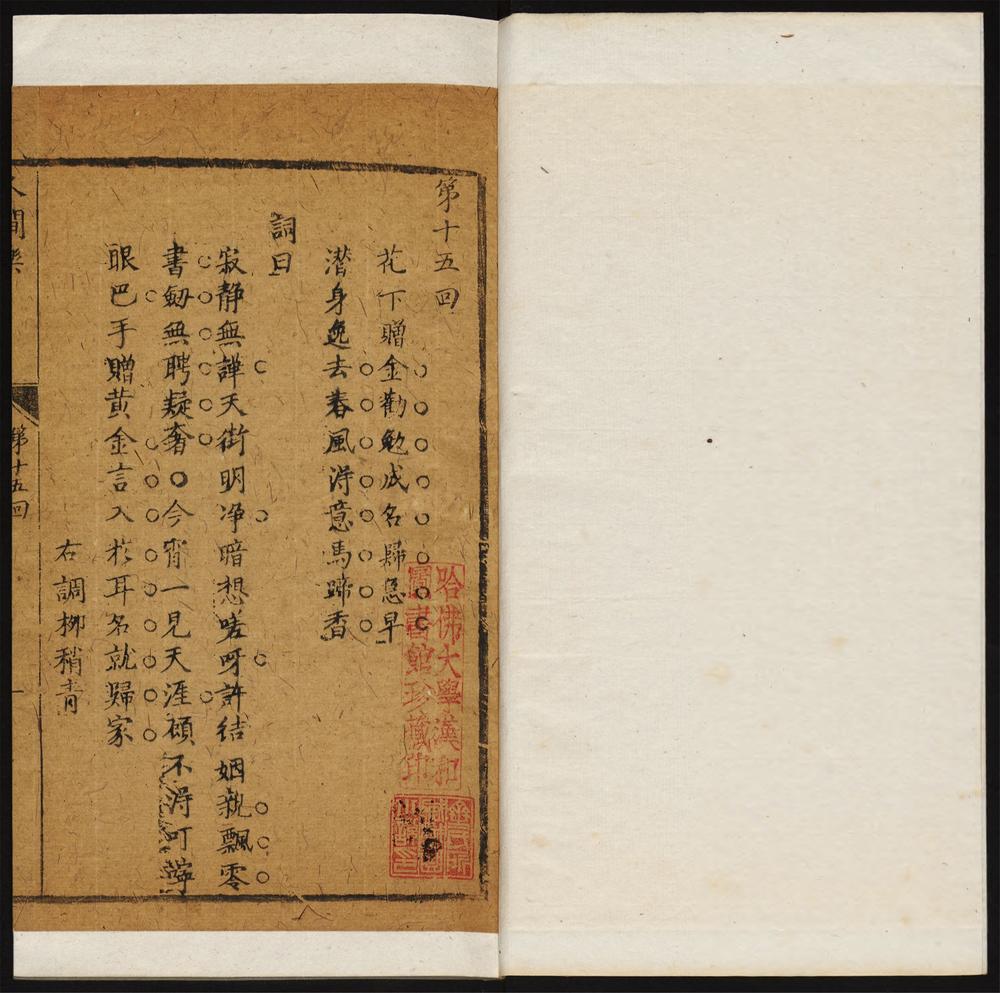 第十五回
花下贈金勸勉成名歸急早
潛身逸去春風得意馬蹄香
詞曰
寂靜無譁天街明净暗想嗟呀許結姻親飄零
書劒無聘疑奢○今宵一見天涯顧不得叮嚀
眼巴手贈黄金言入於耳名就歸家
右調柳稍青
人間樂
第十五回
一
哈佛大學漢和
圖書館珍藏印